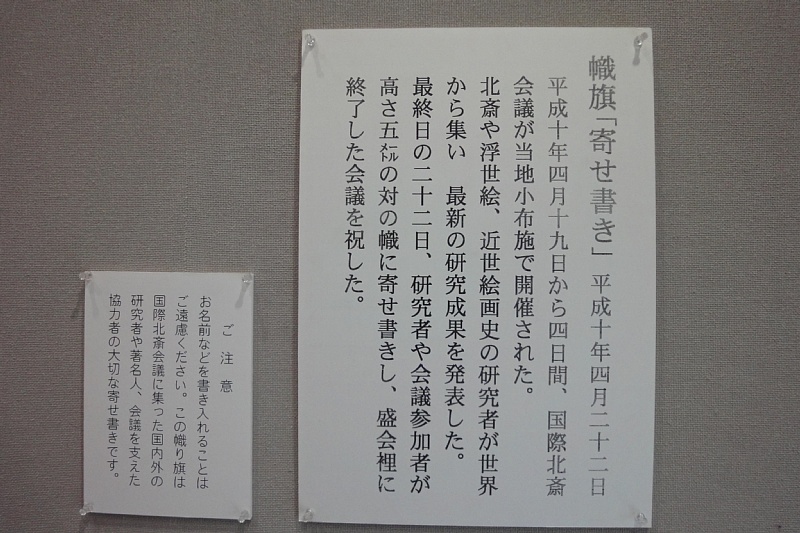 幟旗「寄せ書き」 平成十年四月二十二日
平成十年四月十九日から四日間、国際北斎
会議が当地小布施で開催された。
北斎や浮世絵、近世絵画史の研究者が世界
から集い 最新の研究成果を発表した。
最終日の二十二日、研究者や会議参加者が
高さ五㍍の対の幟に寄せ書きし、盛会裡に
終了した会議を祝した。
ご注意
お名前などを書き入れることは
ご遠慮ください。この幟り旗は
国際北斎会議に集った国内外の
研究者や著名人、会議を支えた
協力者の大切な寄せ書きです。